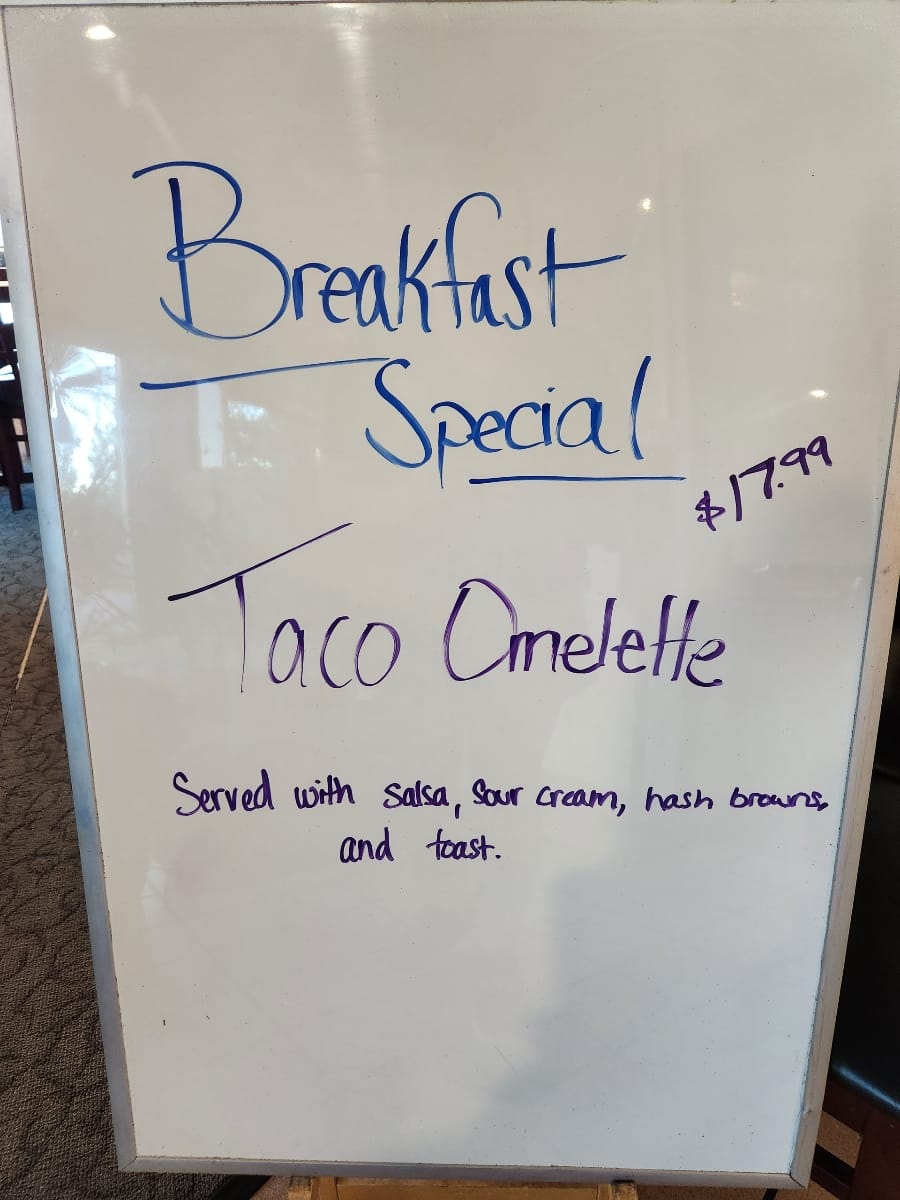 Breakfast
Special
$17.99
Taco Omelette
Served with salsa, Sour cream, hash browns,
and toast.